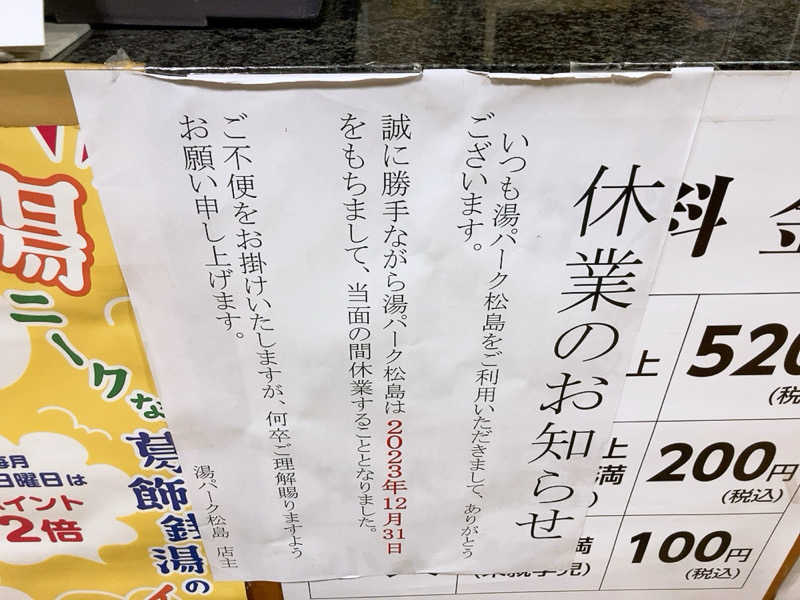 休業のお知らせ
いつも湯パーク松島をご利用いただきまして、ありがとう
ございます。
誠に勝手ながら湯パーク松島は2023年12月31日
をもちまして、当面の間休業することとなりました。
ご不便をお掛けいたしますが、何卒ご理解賜りますよう
お願い申し上げます。
湯パーク松島 店主
料金
上 520
(税込
上
満
)
200円
(税込)
満
(未就学児)
100円
(税込)
湯
ニークな
葛飾銭湯の
毎月
日曜日は
ポイント
2倍